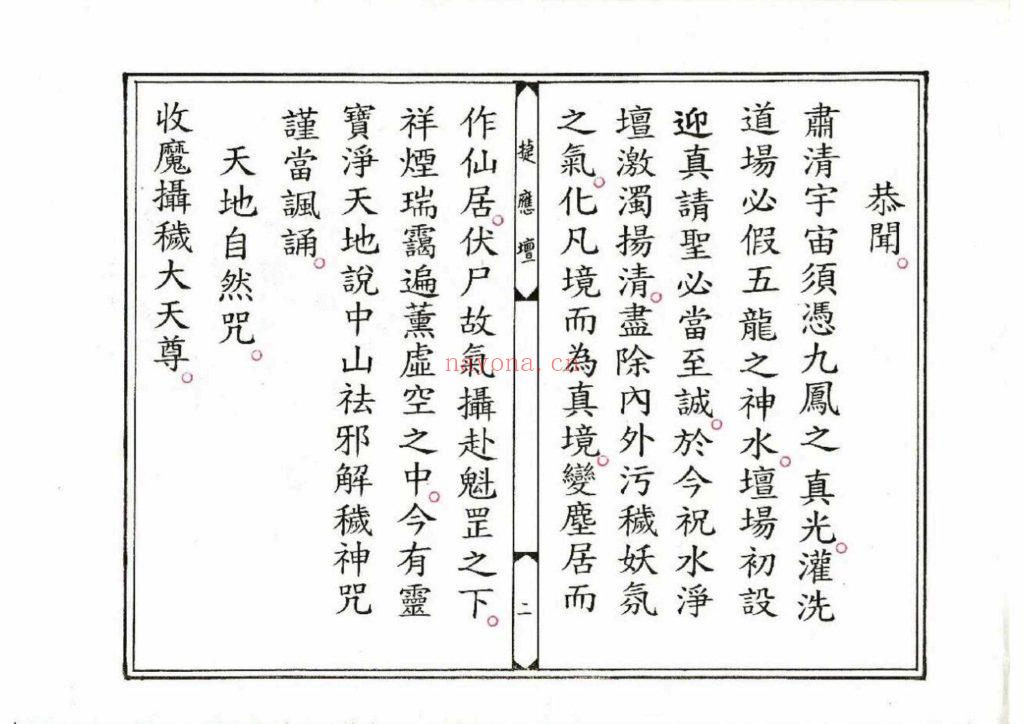 恭聞。
肅清宇宙須憑九鳳之真光。灌洗
道場必假五龍之神水。壇場初設
迎真請聖必當至誠。於今祝水淨
壇激濁揚清。盡除內外污穢妖氛
之氣。化凡境而為真境。變塵居而
捷應壇
二
作仙居。伏尸故氣攝赴魁罡之下。
祥煙瑞靄遍薰虛空之中。今有靈
寶淨天地說中山祛邪解穢神咒
謹當諷誦。
天地自然咒。
收魔攝穢大天尊。
nayona.cn